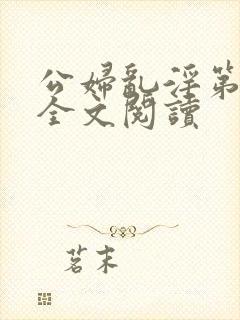 公婦亂淫第
全文閱讀
茗末